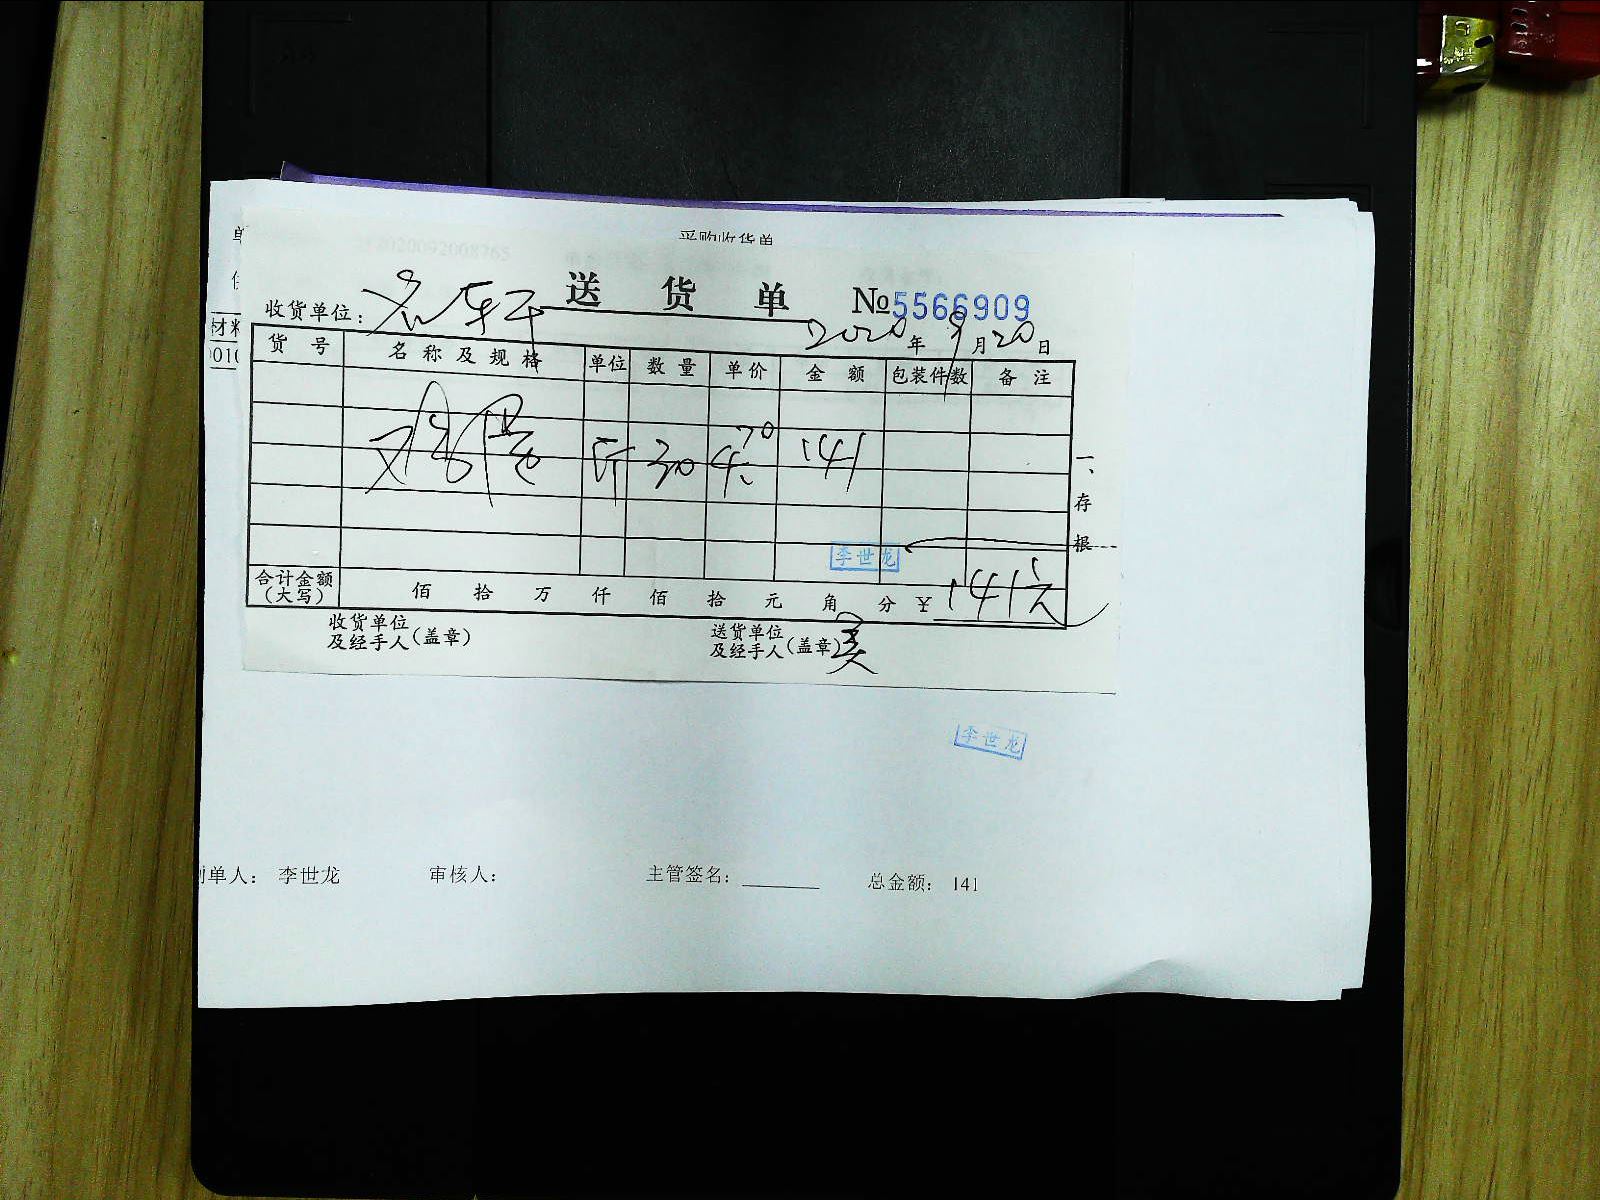 采购收货单
单
2020092008765
材料
送货单 №5566909
收货单位：
2020年9月20日
货号 名称及规格 单位 数量 单价 金额 包装件数 备注
斤 30 4.70 141
一、存根
李世龙
合计金额（大写） 佰 拾 万 仟 佰 拾 元 角 分 ￥141元
收货单位及经手人（盖章）
送货单位及经手人（盖章）
李世龙
制单人： 李世龙 审核人： 主管签名： 总金额： 141